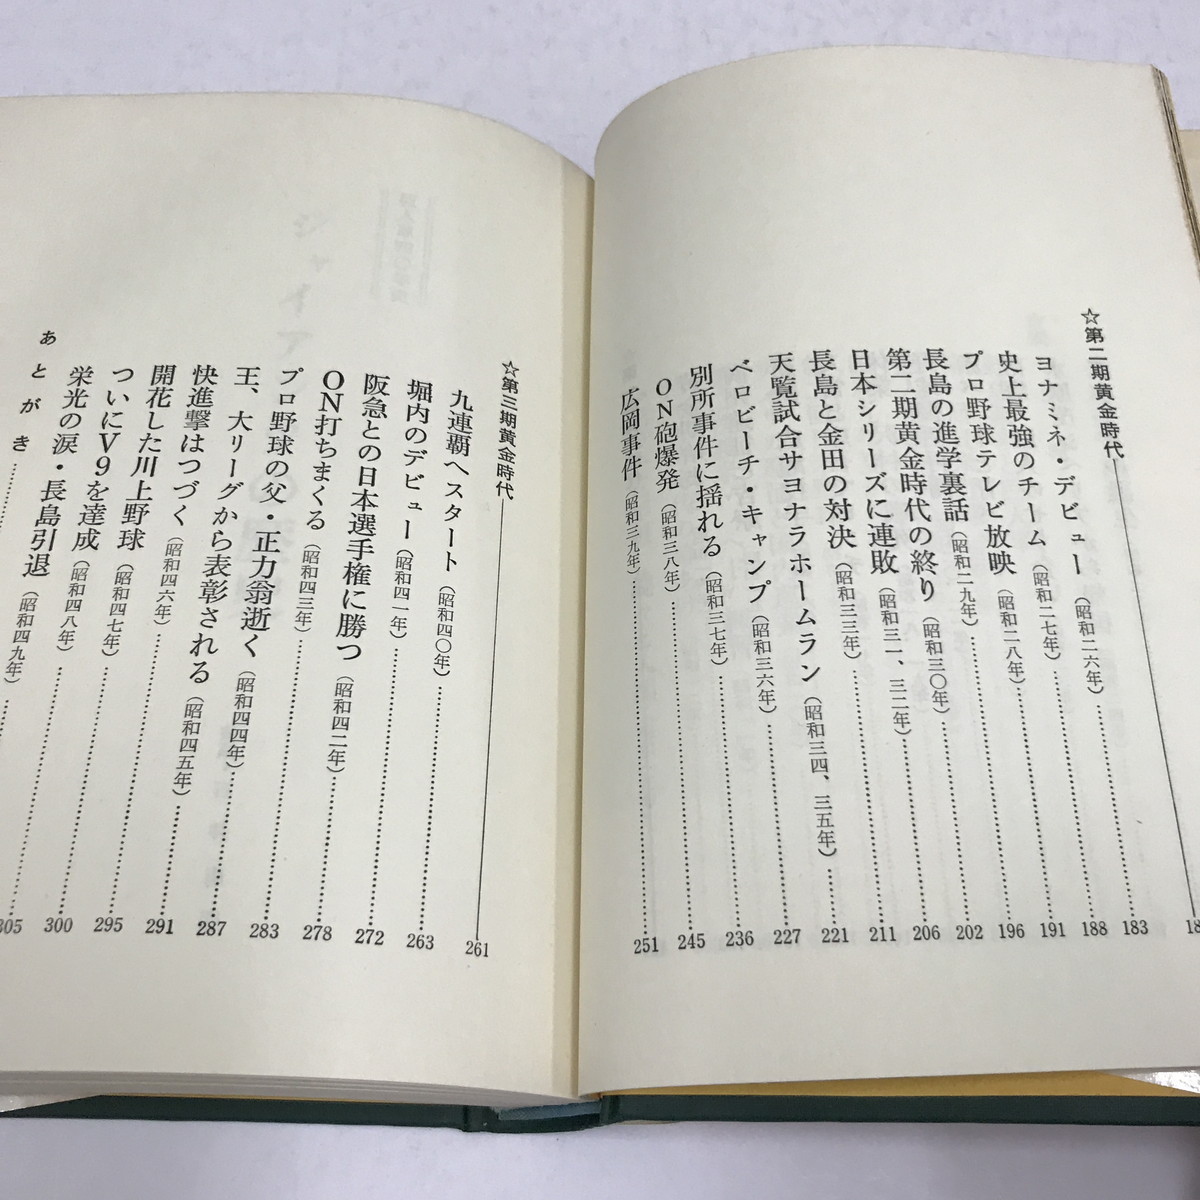 ☆第二期黄金時代
ヨナミネ・デビュー（昭和二六年）……183
史上最強のチーム（昭和二七年）……188
プロ野球テレビ放映（昭和二八年）……191
長島の進学裏話（昭和二九年）……196
第二期黄金時代の終り（昭和三〇年）……202
日本シリーズに連敗（昭和三一、三二年）……206
長島と金田の対決（昭和三三年）……211
天覧試合サヨナラホームラン（昭和三四、三五年）……221
ベロビーチ・キャンプ（昭和三六年）……227
別所事件に揺れる（昭和三七年）……236
ON砲爆発（昭和三八年）……245
広岡事件（昭和三九年）……251
☆第三期黄金時代 261
九連覇へスタート（昭和四〇年）……263
堀内のデビュー（昭和四一年）……272
阪急との日本選手権に勝つ（昭和四二年）……278
ON打ちまくる（昭和四三年）……283
プロ野球の父・正力翁逝く（昭和四四年）……287
王、大リーグから表彰される（昭和四五年）……291
快進撃はつづく（昭和四六年）……295
開花した川上野球（昭和四七年）……300
ついにV9を達成（昭和四八年）……305
栄光の涙・長島引退（昭和四九年）
あとがき……